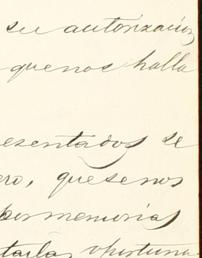 su autorizacion
quenos halla
esentados se
ero, quesenos
pormemorias
tarla oportuna